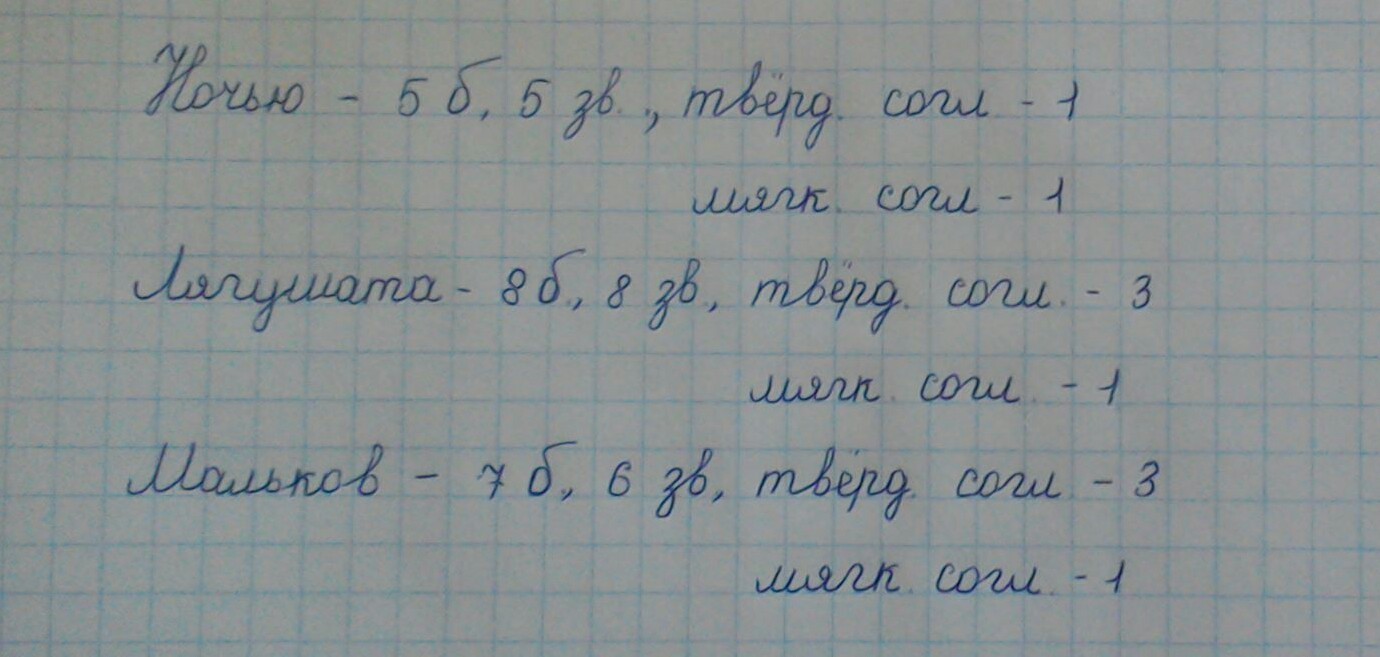 Ночью - 5 б, 5 зв., твёрд. согл - 1
мягк. согл - 1
Лягушата - 8 б, 8 зв, твёрд. согл. - 3
мягк. согл. - 1
Мальков - 7 б, 6 зв, твёрд. согл - 3
мягк. согл. - 1